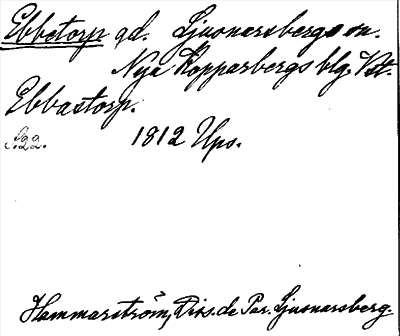 Ebbetorp gd. Ljusnarsbergs sn.
Nya Kopparbergs blg. Vst.
Ebbastorp.
1812 Ups.
Hammarström, Diss. de Par. Ljusnarsberg.